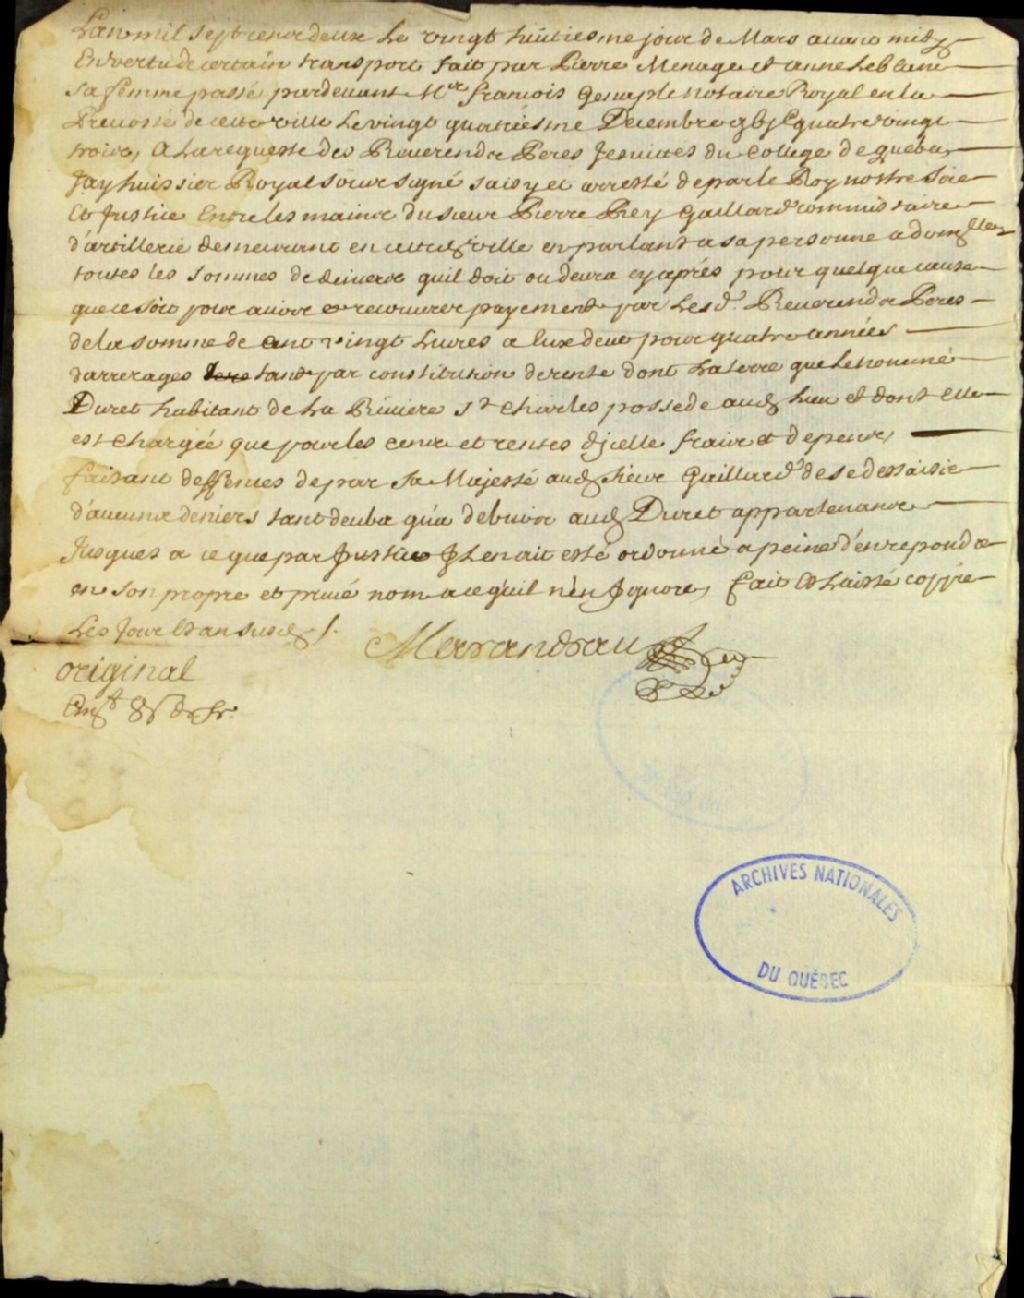 L'an mil sept cent deux le vingt huitiesme jour de Mars avant midy
En vertu de certain transport fait par Pierre Menage et anne Leblanc
sa femme passé pardevant Mre françois Genaple notaire Royal en la
Prevosté de cette ville Le vingt quatriesme Decembre gbjC quatre vingt
trois, A la requeste des Reverends Peres Jesuittes du College de quebec
Jay huissier Royal soussigné saisy et arresté de par le Roy nostre Sire
Et Justice Entre les mains du sieur Pierre Rey Gaillard commissaire
d'artillerie demeurant en cette ville en parlant a sa personne a
touttes les sommes de deniers quil doit ou devra cy après pour quelque cause
que ce soit pour avoir et recouvrer payement par Les d. Reverends Peres
de la somme de cent vingt Livres a Eux deue pour quatre années
darrerages tant par constitution de rente dont La terre que le nommé
Duret habitant de La Riviere St Charles possede aud Lieu et dont elle
est chargée que pour les cens et rentes djcelle fraix et depens,
faisant deffences de par Sa Majesté aud Sieur Gaillard de se dessaisir
d'aucuns deniers tant deubs qu'a debvoir aud Duret appartenants
Jusques a ce que par Justice JL en ait esté ordonné a peine d'en repondre
en son propre et privé nom a ce qu'il n'en Jgnore, fait Et Laissé coppie
Les Jour Et an susd /.
Marandeau
original
ARCHIVES NATIONALES
DU QUÉBEC